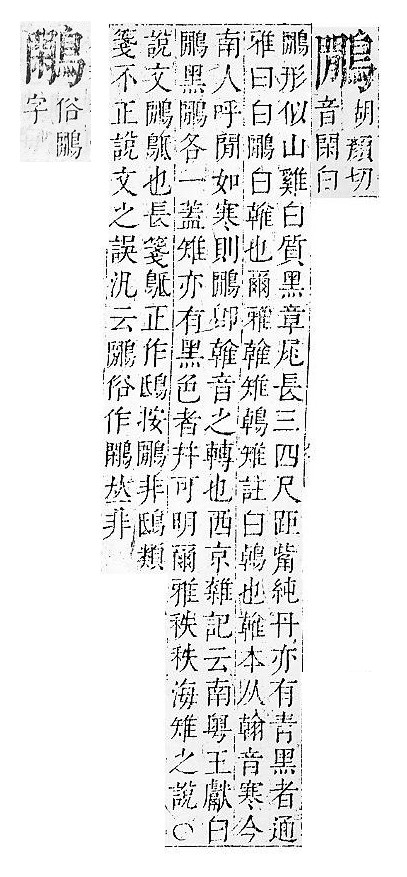 鷴
胡顏切
音閑白
鷴形似山雞白質黑章尾長三四尺距觜純丹亦有青黑者通
雅曰白鷴白雗也爾雅雗雉鵫雉註白鵫也雗本从翰音寒今
南人呼閒如寒則鷴卽雗音之轉也西京雜記云南粵王獻白
鷴黑鷴各一蓋雉亦有黑色者幷可明爾雅秩秩海雉之說〇
說文鷴鴟也長箋鴟正作鴟按鷴非鴟類
箋不正說文之誤汎云鷴俗作鷼𠀤非
鷼
俗鷴
字